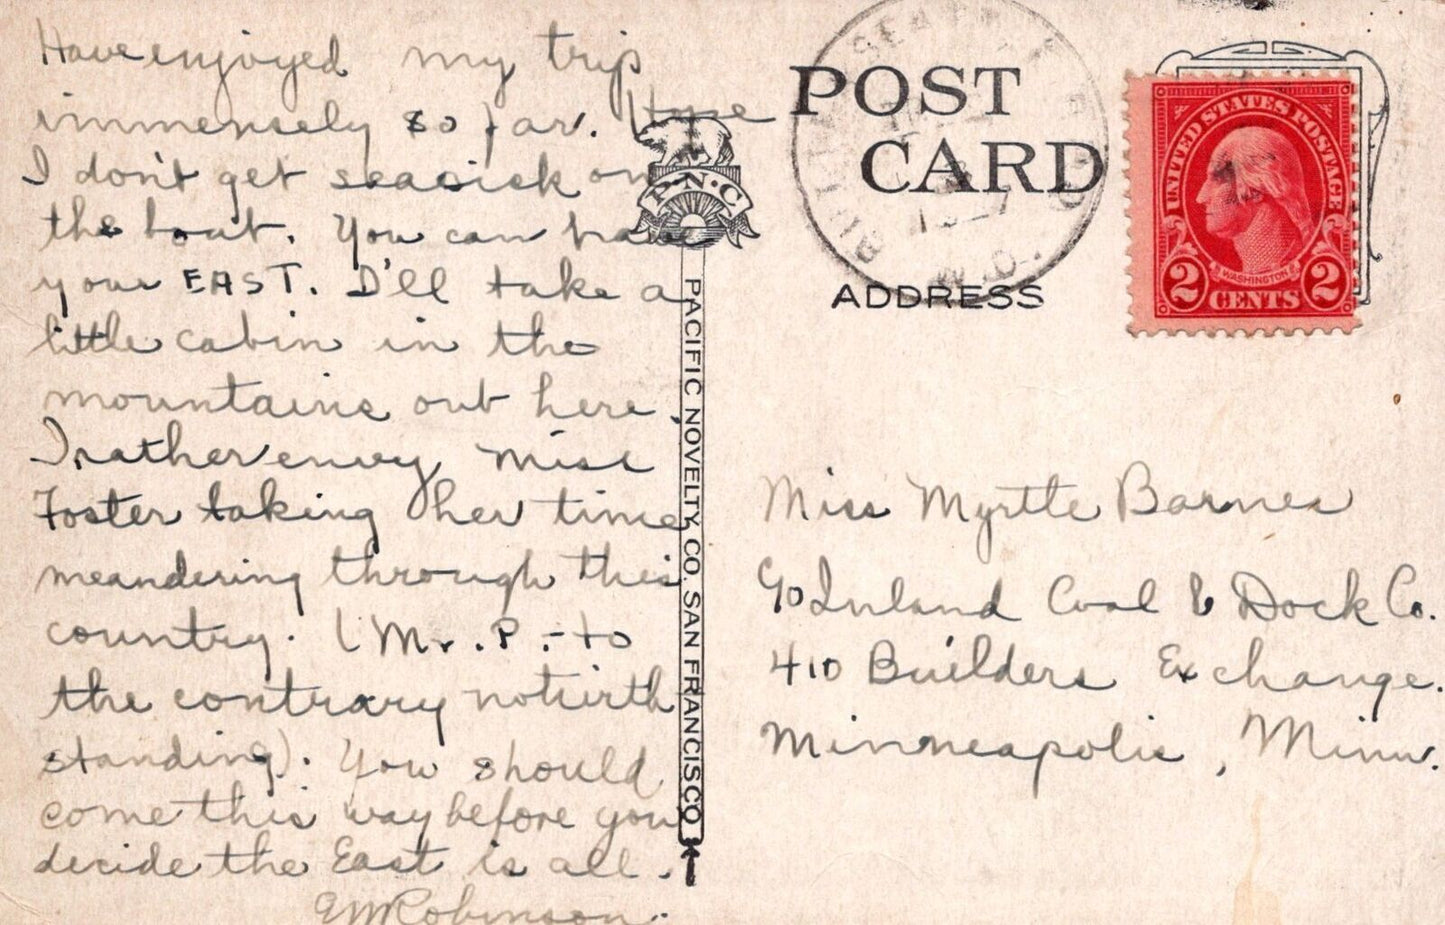 Have enjoyed my trip
immensely so far. Hope
I don't get seasick on
the boat. You can have
your EAST. I'll take a
little cabin in the
mountains out here.
I rather envy Miss
Foster taking her time
meandering through this
country. (Mr. P. - to
the contrary notwith
standing). You should
come this way before you
decide the East is all.
EMRobinson.
P·N·C
PACIFIC NOVELTY CO. SAN FRANCISCO
POST
CARD
ADDRESS
UNITED STATES POSTAGE
WASHINGTON
2 CENTS 2
Miss Myrtle Barnes
c/o Inland Coal & Dock Co.
410 Builders Exchange.
Minneapolis, Minn.